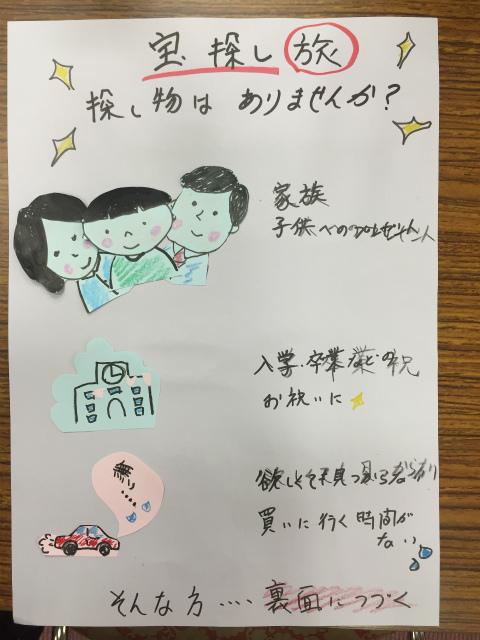 宝探し旅
探し物は ありませんか?
家族
子供へのプレゼント
入学・卒業などの祝
お祝いに
欲しくても見つからない
買いに行く時間が
ない
無い....
そんな方.... 裏面につづく